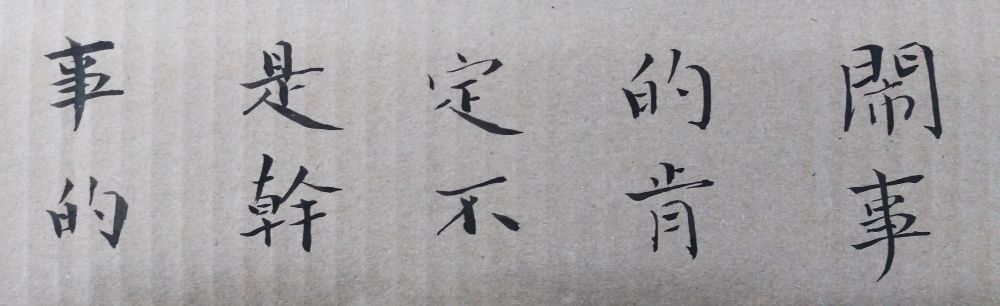 鬧事
的肯
定不
是幹
事的